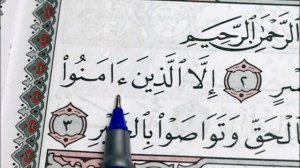 الرَّحْمَٰنِ الرَّحِيمِ
ٍ ٢ إِلَّا الَّذِينَ ءَامَنُوا۟
الْحَقِّ وَتَوَاصَوْا۟ بِالصَّبْرِ ٣